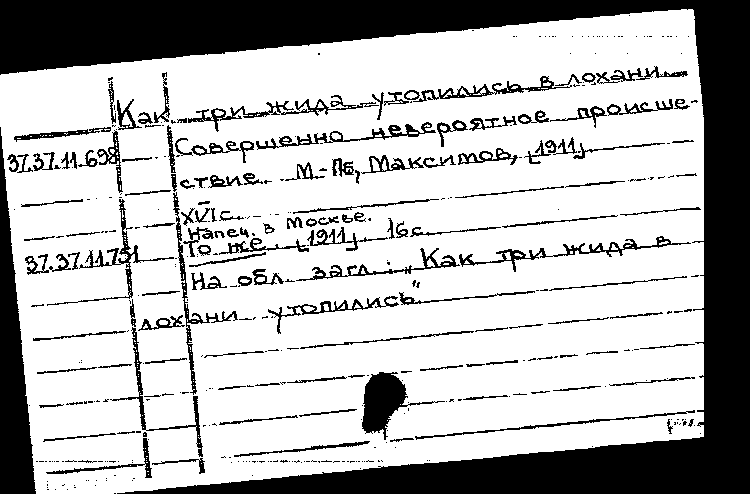 Как три жида утопились в лохани.
Совершенно невероятное происше-
37.37.11.698
ствие. М.-Пб, Максимов, [1911].
XVI с.
Напеч. в Москве.
37.37.11.731 То же [1911] 16 с.
На обл. загл.: „Как три жида в
лохани утопились"